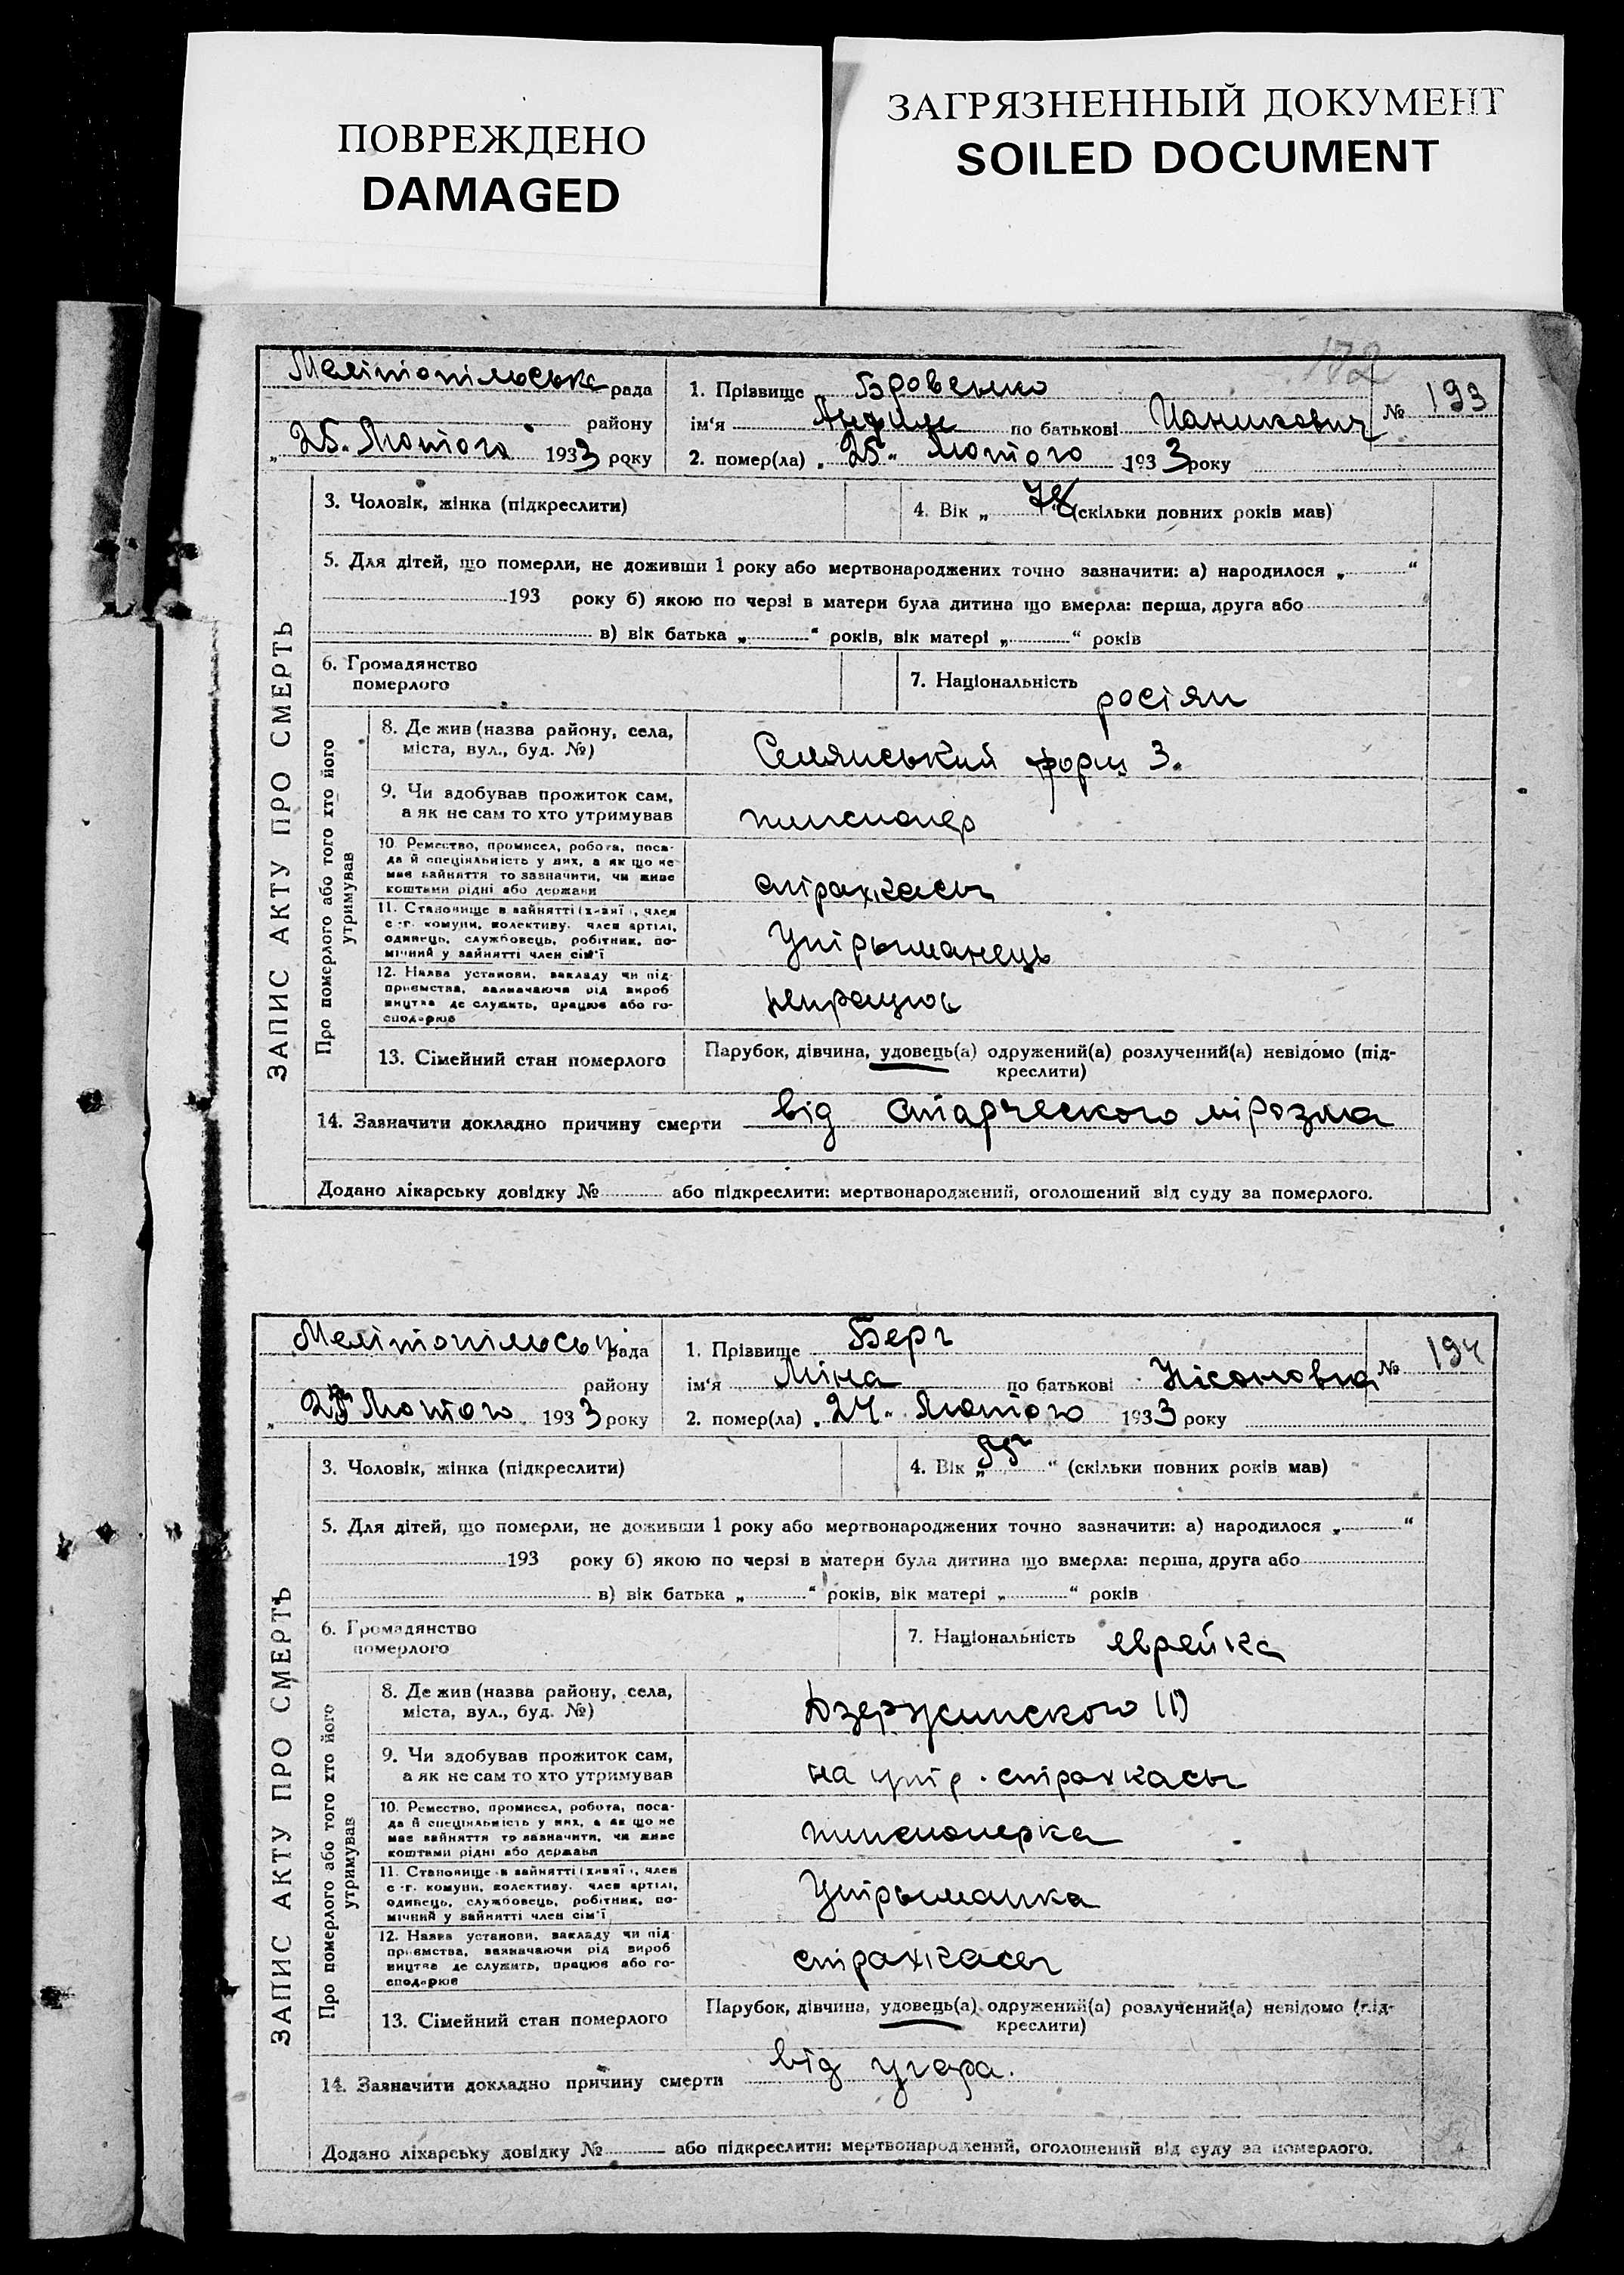 ПОВРЕЖДЕНО
DAMAGED
ЗАГРЯЗНЕННЫЙ ДОКУМЕНТ
SOILED DOCUMENT
172
Мелітопільська рада
району
„ 25. Лютого 1933 року
1. Прізвище Бровенко
ім‘я по батькові
№ 193
2. помер(ла) „ 25 “ Лютого 1933 року
ЗАПИС АКТУ ПРО СМЕРТЬ
3. Чоловік, жінка (підкреслити)
4. Вік „ 78 (скільки повних років мав)
5. Для дітей, що померли, не доживши 1 року або мертвонароджених точно зазначити: а) народилося „ “
193 року б) якою по черзі в матери була дитина що вмерла: перша, друга або
в) вік батька „ “ років, вік матері „ “ років
6. Громадянство
померлого
7. Національність росіян
Про померлого або того хто його
утримував
8. Де жив (назва району, села,
міста, вул., буд. №)
Селянський форш 3.
9. Чи здобував прожиток сам,
а як не сам то хто утримував
пенсионер
10. Ремество, промисел, робота, поса-
да й спеціяльність у них, а як що не
має зайняття то зазначити, чи живе
коштами рідні або держави
страхкасы
11. Становище в зайнятті (хазяї, член
с.-г. комуни, колективу, член артілі,
одинець, службовець, робітник, по-
мічний у зайнятті член сім‘ї
Утрыманець
12. Назва установи, закладу чи під-
приємства, зазначаючи рід вироб
ництва де служить, працює або го-
сподарює
непрацює
13. Сімейний стан померлого
Парубок, дівчина, удовець(а) одружений(а) розлучений(а) невідомо (під-
креслити)
14. Зазначити докладно причину смерти від старческого мірозма
Додано лікарську довідку № або підкреслити: мертвонароджений, оголошений від суду за померлого.
Мелітопільськ рада
району
„ 25 Лютого 1933 року
1. Прізвище Берг
ім‘я Міна по батькові Нісоновна
№ 194
2. помер(ла) „ 24 “ Лютого 1933 року
ЗАПИС АКТУ ПРО СМЕРТЬ
3. Чоловік, жінка (підкреслити)
4. Вік „ 55 “ (скільки повних років мав)
5. Для дітей, що померли, не доживши 1 року або мертвонароджених точно зазначити: а) народилося „ “
193 року б) якою по черзі в матери була дитина що вмерла: перша, друга або
в) вік батька „ “ років, вік матері „ “ років
6. Громадянство
померлого
7. Національність єврейка
Про померлого або того хто його
утримував
8. Де жив (назва району, села,
міста, вул., буд. №)
Дзержинского
9. Чи здобував прожиток сам,
а як не сам то хто утримував
на утр. страхкасы
10. Ремество, промисел, робота, поса-
да й спеціяльність у них, а як що не
має зайняття то зазначити, чи живе
коштами рідні або держави
пенсионерка
11. Становище в зайнятті (хазяї, член
с.-г. комуни, колективу, член артілі,
одинець, службовець, робітник, по-
мічний у зайнятті член сім‘ї
Утрыманка
12. Назва установи, закладу чи під-
приємства, зазначаючи рід вироб
ництва де служить, працює або го-
сподарює
страхкасы
13. Сімейний стан померлого
Парубок, дівчина, удовець(а) одружений(а) розлучений(а) невідомо (під-
креслити)
14. Зазначити докладно причину смерти від угара.
Додано лікарську довідку № або підкреслити: мертвонароджений, оголошений від суду за померлого.